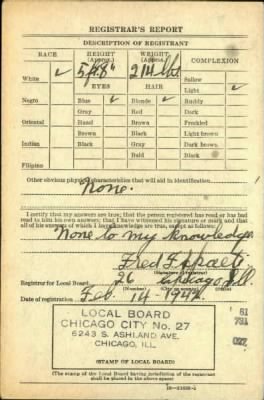 REGISTRAR'S REPORT
DESCRIPTION OF REGISTRANT
RACE HEIGHT (Approx.) WEIGHT (Approx.) COMPLEXION
White ✓ 5 ft 8" Sallow
EYES HAIR Light ✓
Negro Blue ✓ Blonde ✓ Ruddy
Gray Red Dark
Oriental Hazel Brown Freckled
Brown Black Light brown
Indian Black Gray Dark brown
Bald Black
Filipino
Other obvious physical characteristics that will aid in identification
None.
I certify that my answers are true; that the person registered has read or has had
read to him his own answers; that I have witnessed his signature or mark and that
all of his answers of which I have knowledge are true, except as follows:
None to my knowledge
Fred
(Signature of registrar)
Registrar for Local Board 26 Chicago Ill
(Number) (City or county) (State)
Date of registration Feb. 14 - 1942
LOCAL BOARD
CHICAGO CITY No. 27
6243 S. ASHLAND AVE.
CHICAGO, ILL.
61
731
027
(STAMP OF LOCAL BOARD)
(The stamp of the Local Board having jurisdiction of the registrant
shall be placed in the above space)